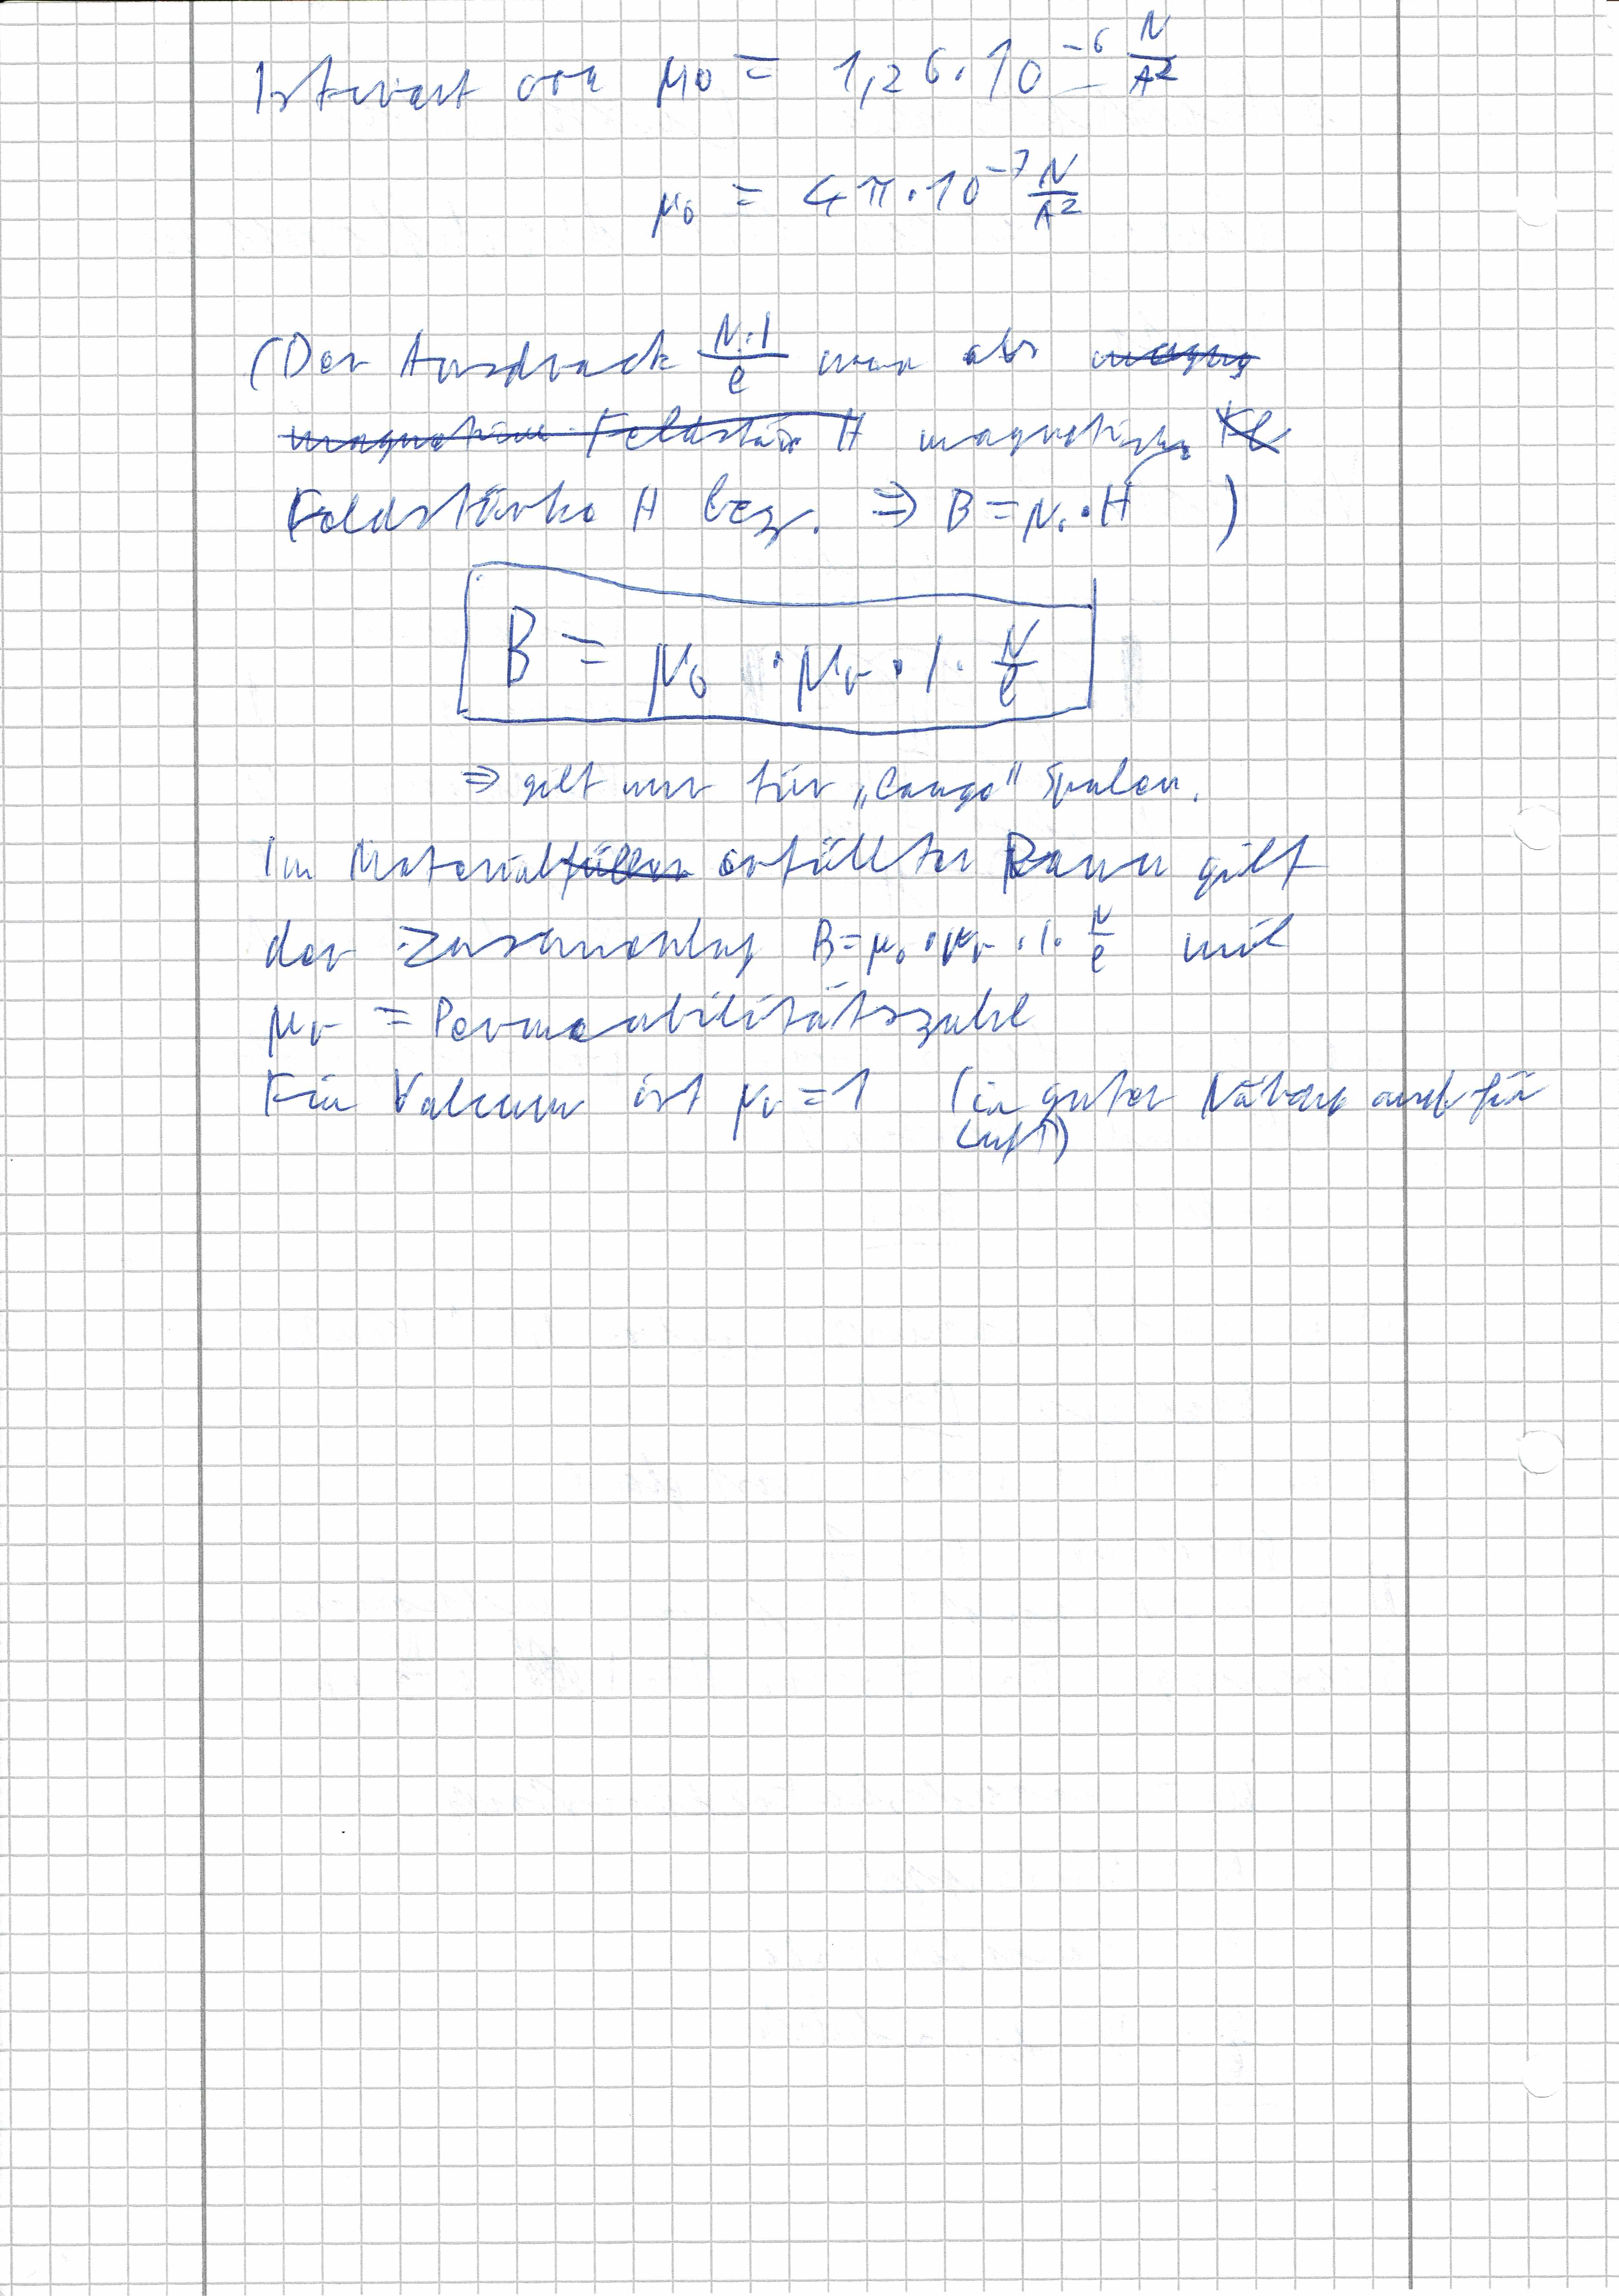 Istwert von μ0 = 1,26·10^-6 N/A²
μ0 = 4π·10^-7 N/A²
(Der Ausdruck N·I/l man als
H magnetische
Feldstärke H bez. ⇒ B = μ0·H )
B = μ0 · μr · I · N/l
⇒ gilt nur für „lange" Spulen.
Im Material erfüllten Raum gilt
der B=μ0·μr·I·N/l mit
μr = Permeabilitätszahl
Für Vakuum ist μr = 1 (in guter auch für
Luft)